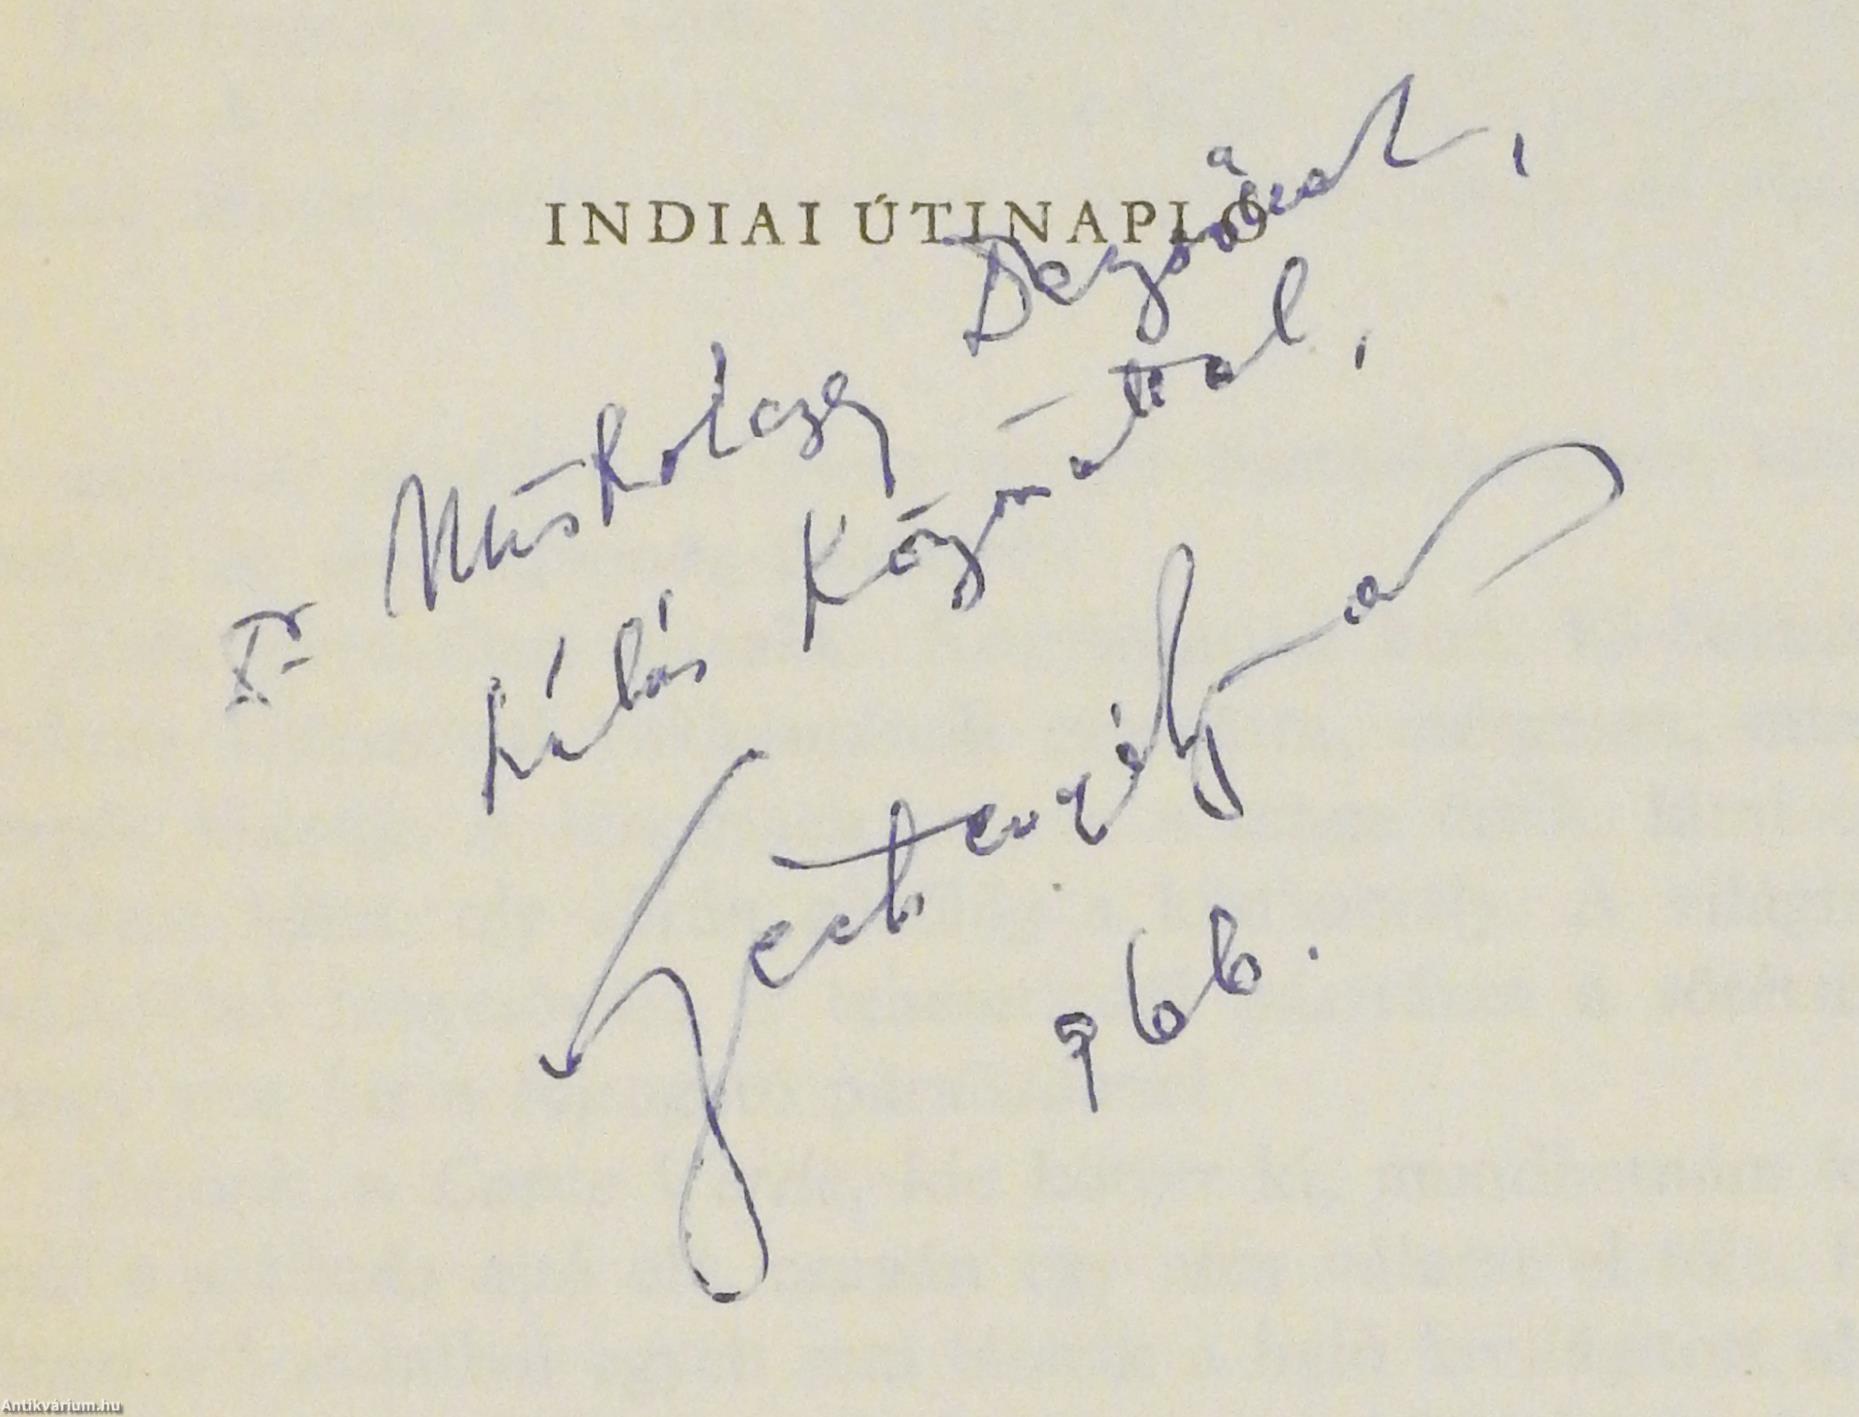 INDIAI ÚTINAPLÓ
Dr Miskolczy Dezsőnek,
hálás köszönettel,
966.
Antikvárium.hu